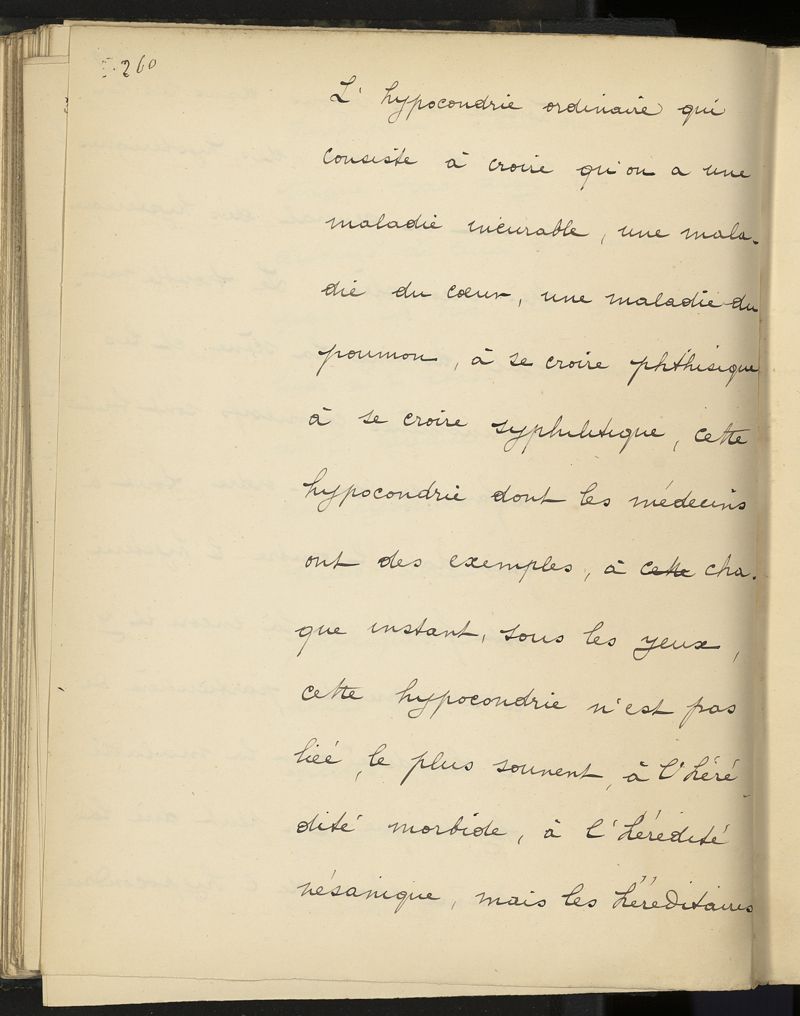 260
L'hypocondrie ordinaire qui
consiste à croire qu'on a une
maladie incurable, une mala-
die du cœur, une maladie du
poumon, à se croire phthisique
à se croire syphilitique, cette
hypocondrie dont les médecins
ont des exemples, à cette cha-
que instant, sous les yeux,
cette hypocondrie n'est pas
liée, le plus souvent, à l'héré
dité morbide, à l'hérédité
vésanique, mais les héréditaires